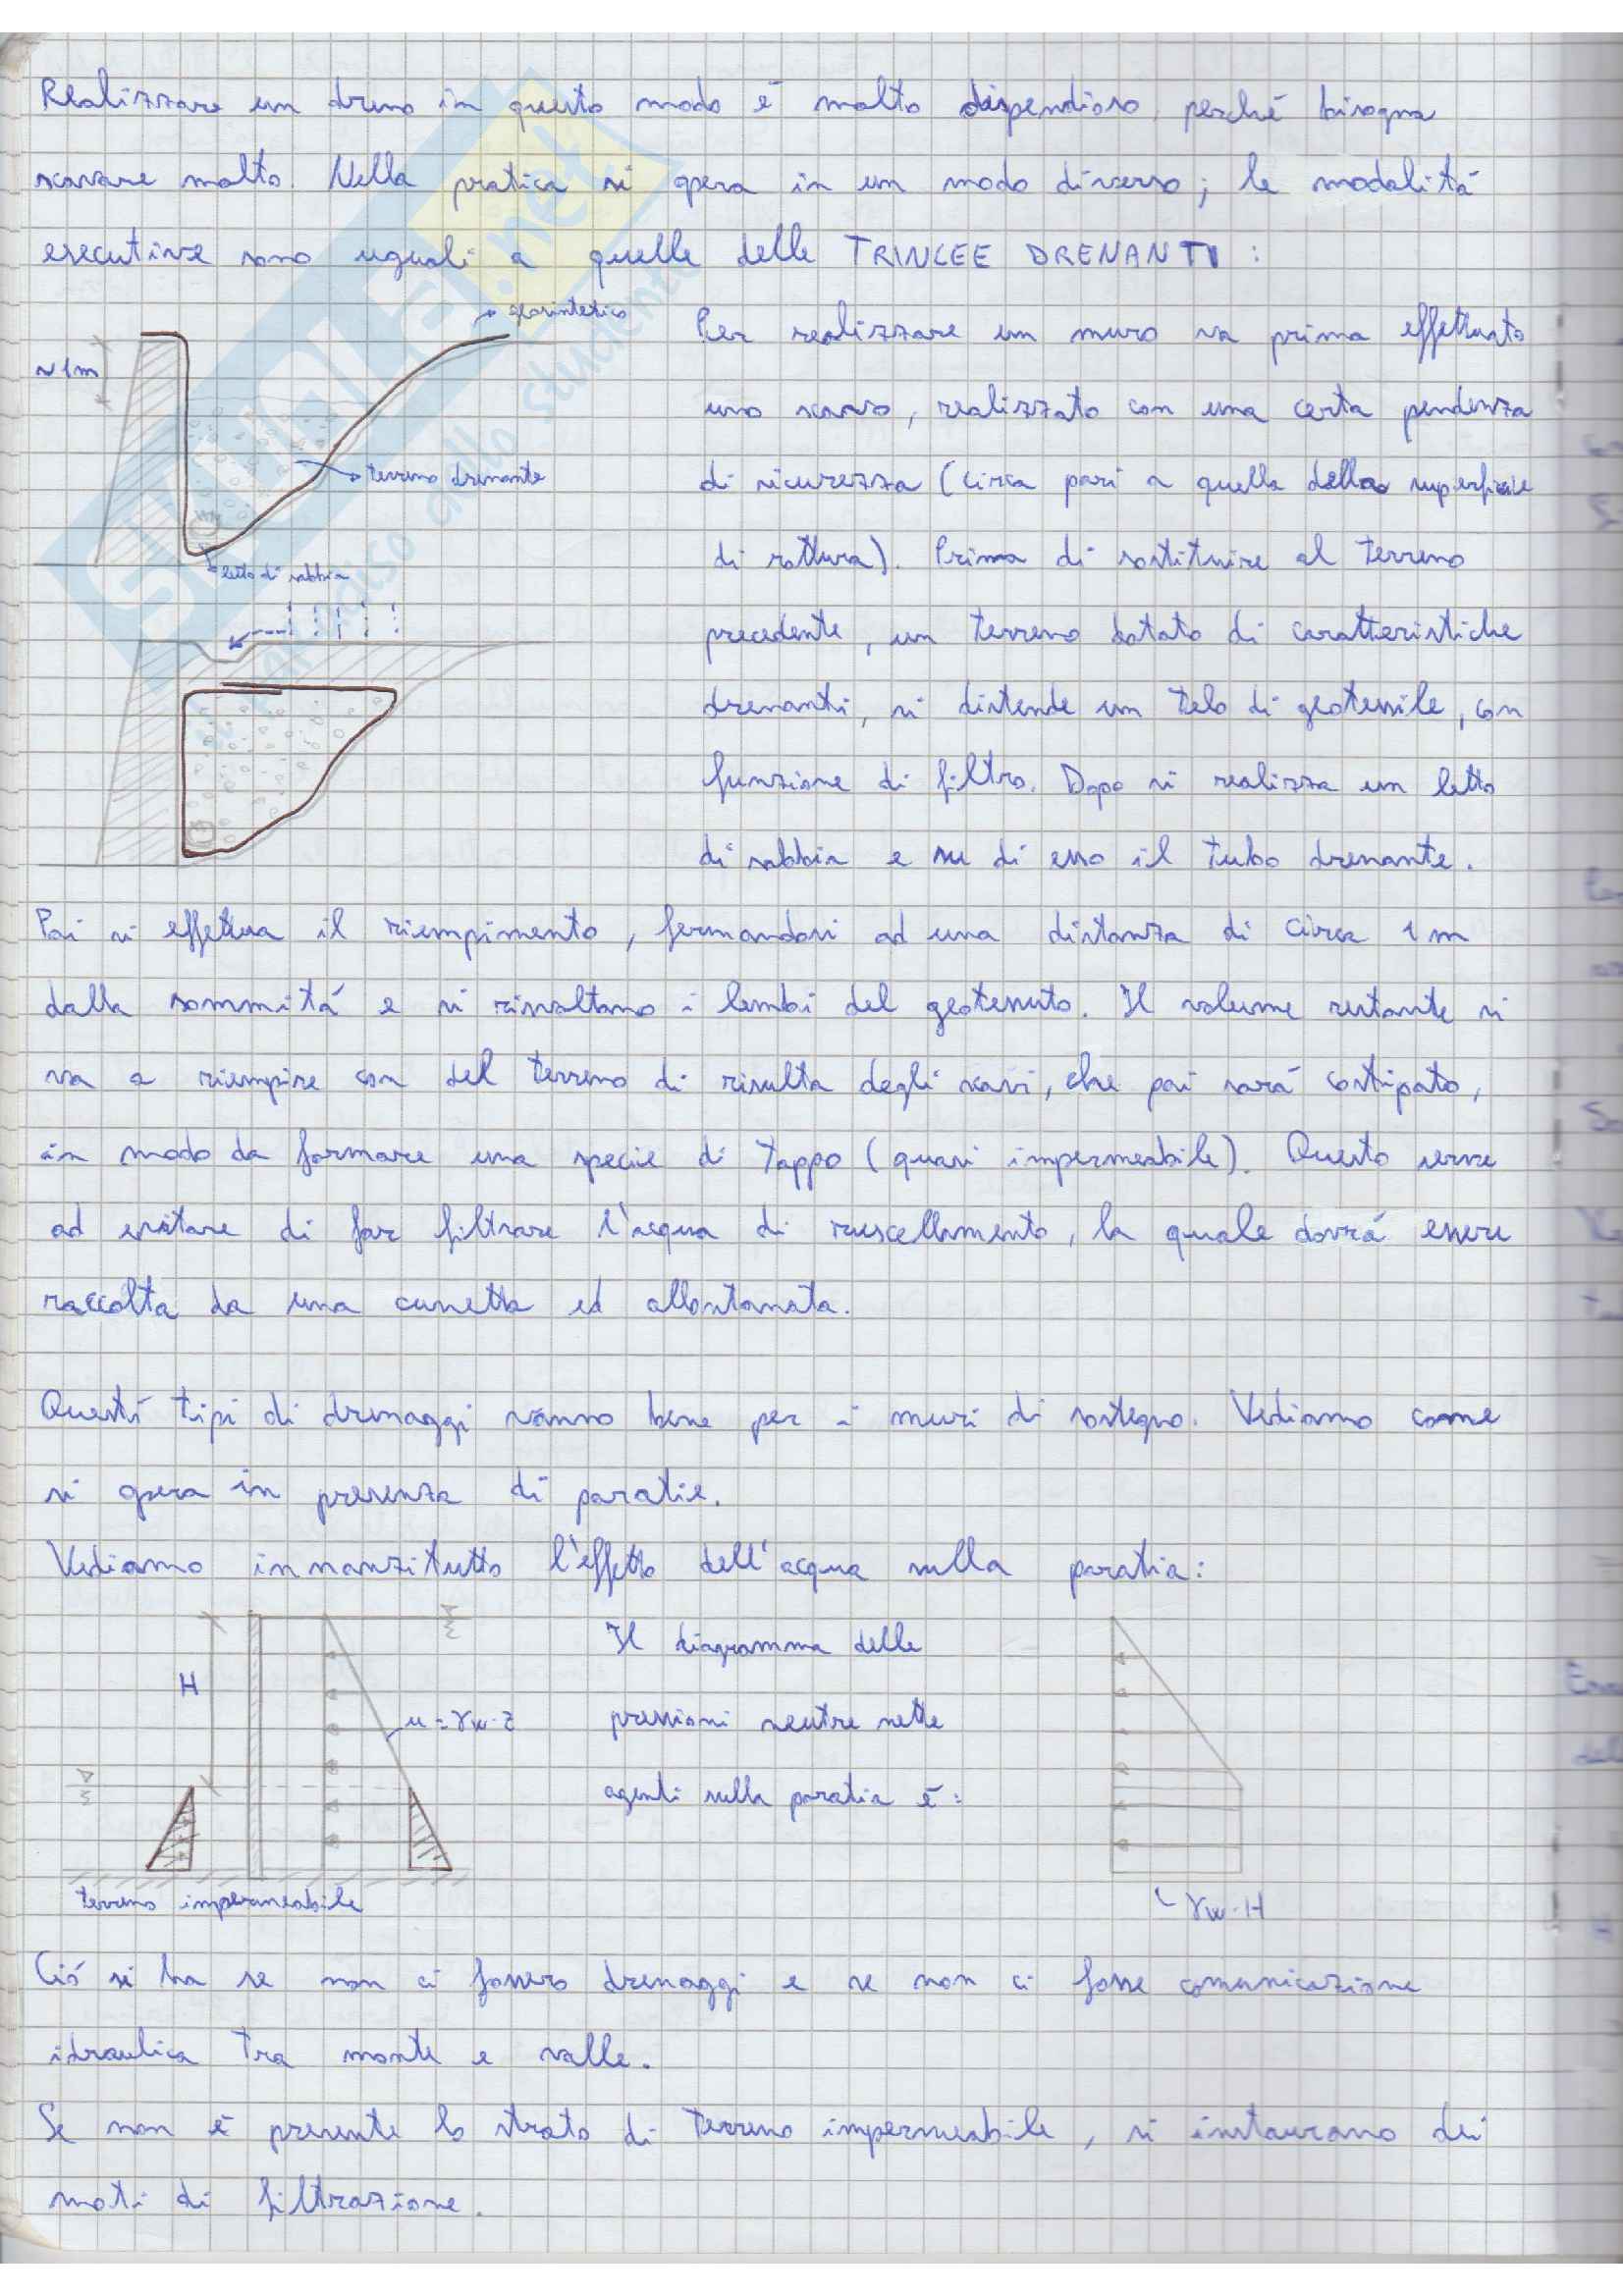 Realizzare un dreno in questo modo é molto dispendioso, perché bisogna
scavare molto. Nella pratica si opera in un modo diverso; le modalitá
esecutive sono uguali a quelle delle TRINCEE DRENANTI :
geosintetico
Per realizzare un muro va prima effettuato
~1m
uno scavo, realizzato con una certa pendenza
terreno drenante
di sicurezza (circa pari a quella della superficie
di rottura). Prima di sostituire al terreno
letto di sabbia
precedente, un terreno dotato di caratteristiche
drenanti, si distende un telo di geotessile, con
funzione di filtro. Dopo si realizza un letto
di sabbia e su di esso il tubo drenante.
Poi si effettua il riempimento, fermandosi ad una distanza di circa 1 m
dalla sommitá e si risvoltano i lembi del geotessuto. Il volume restante si
va a riempire con del terreno di risulta degli scavi, che poi sará costipato,
in modo da formare una specie di tappo (quasi impermeabile). Questo serve
ad evitare di far filtrare l'acqua di ruscellamento, la quale dovrá essere
raccolta da una cunetta ed allontanata.
Questi tipi di drenaggi vanno bene per i muri di sostegno. Vediamo come
si opera in presenza di paratie.
Vediamo innanzitutto l'effetto dell'acqua sulla paratia:
Il diagramma delle
H
u = γw · z
pressioni neutre nette
agenti sulla paratia é:
terreno impermeabile
γw · H
Ció si ha se non ci fossero drenaggi e se non ci fosse comunicazione
idraulica tra monte e valle.
Se non é presente lo strato di terreno impermeabile, si instaurano dei
moti di filtrazione.